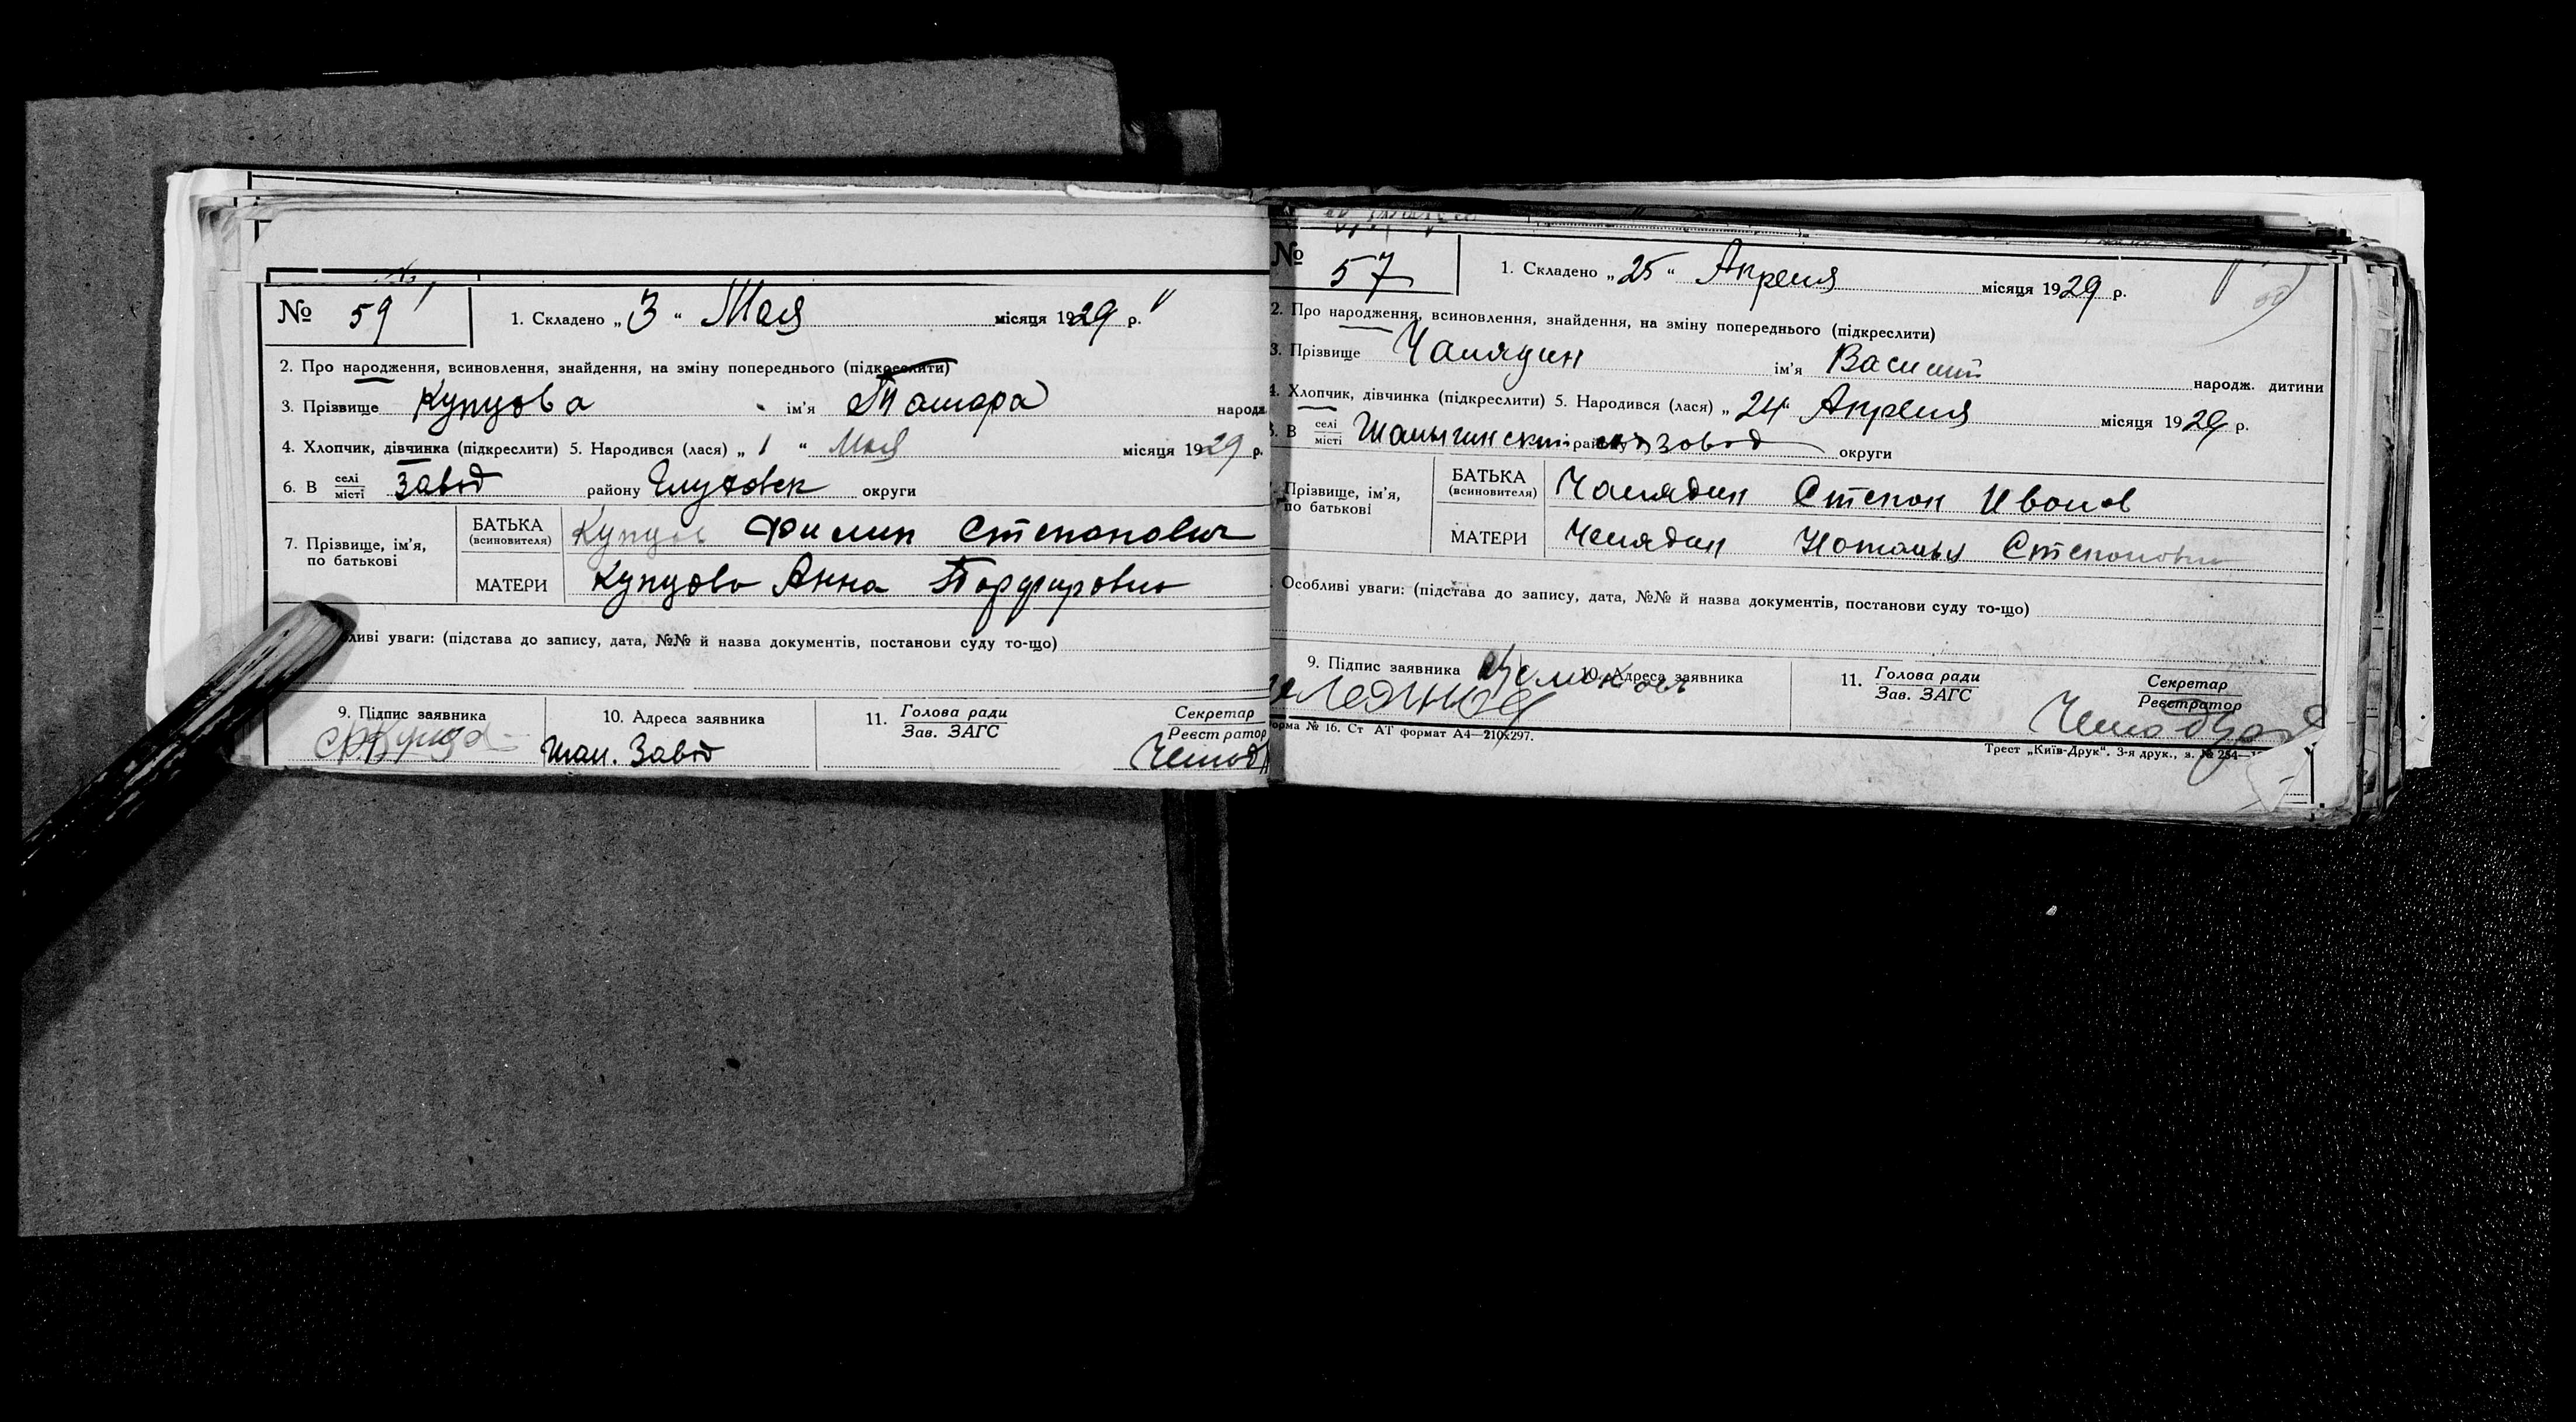 № 59 1. Складено „3“ Мая місяця 1929 р.
2. Про народження, всиновлення, знайдення, на зміну попереднього (підкреслити)
3. Прізвище Купцова ім'я Тамара народж
4. Хлопчик, дівчинка (підкреслити) 5. Народився (лася) „1“ Мая місяця 1929 р.
6. В селі місті Завод району Глуховск округи
7. Прізвище, ім'я, по батькові
БАТЬКА (всиновителя) Купцов Филип Степанович
МАТЕРИ Купцова Анна Порфировна
ливі уваги: (підстава до запису, дата, №№ й назва документів, постанови суду то-що)
9. Підпис заявника 10. Адреса заявника 11. Голова ради Зав. ЗАГС Секретар Реєстратор
Шал. Завод
№ 57 1. Складено „25“ Апреля місяця 1929 р.
2. Про народження, всиновлення, знайдення, на зміну попереднього (підкреслити)
3. Прізвище Чалядин ім'я Василий народж. дитини
4. Хлопчик, дівчинка (підкреслити) 5. Народився (лася) „24“ Апреля місяця 1929 р.
В селі місті Шалыгинский району завод округи
Прізвище, ім'я, по батькові
БАТЬКА (всиновителя) Чалядин Степан Иванов
МАТЕРИ Челядин Наталья Степановна
Особливі уваги: (підстава до запису, дата, №№ й назва документів, постанови суду то-що)
9. Підпис заявника 10. Адреса заявника 11. Голова ради Зав. ЗАГС Секретар Реєстратор
орма № 16. Ст АТ формат А4—210х297.
Трест „Київ-Друк“. 3-я друк., з. № 254—